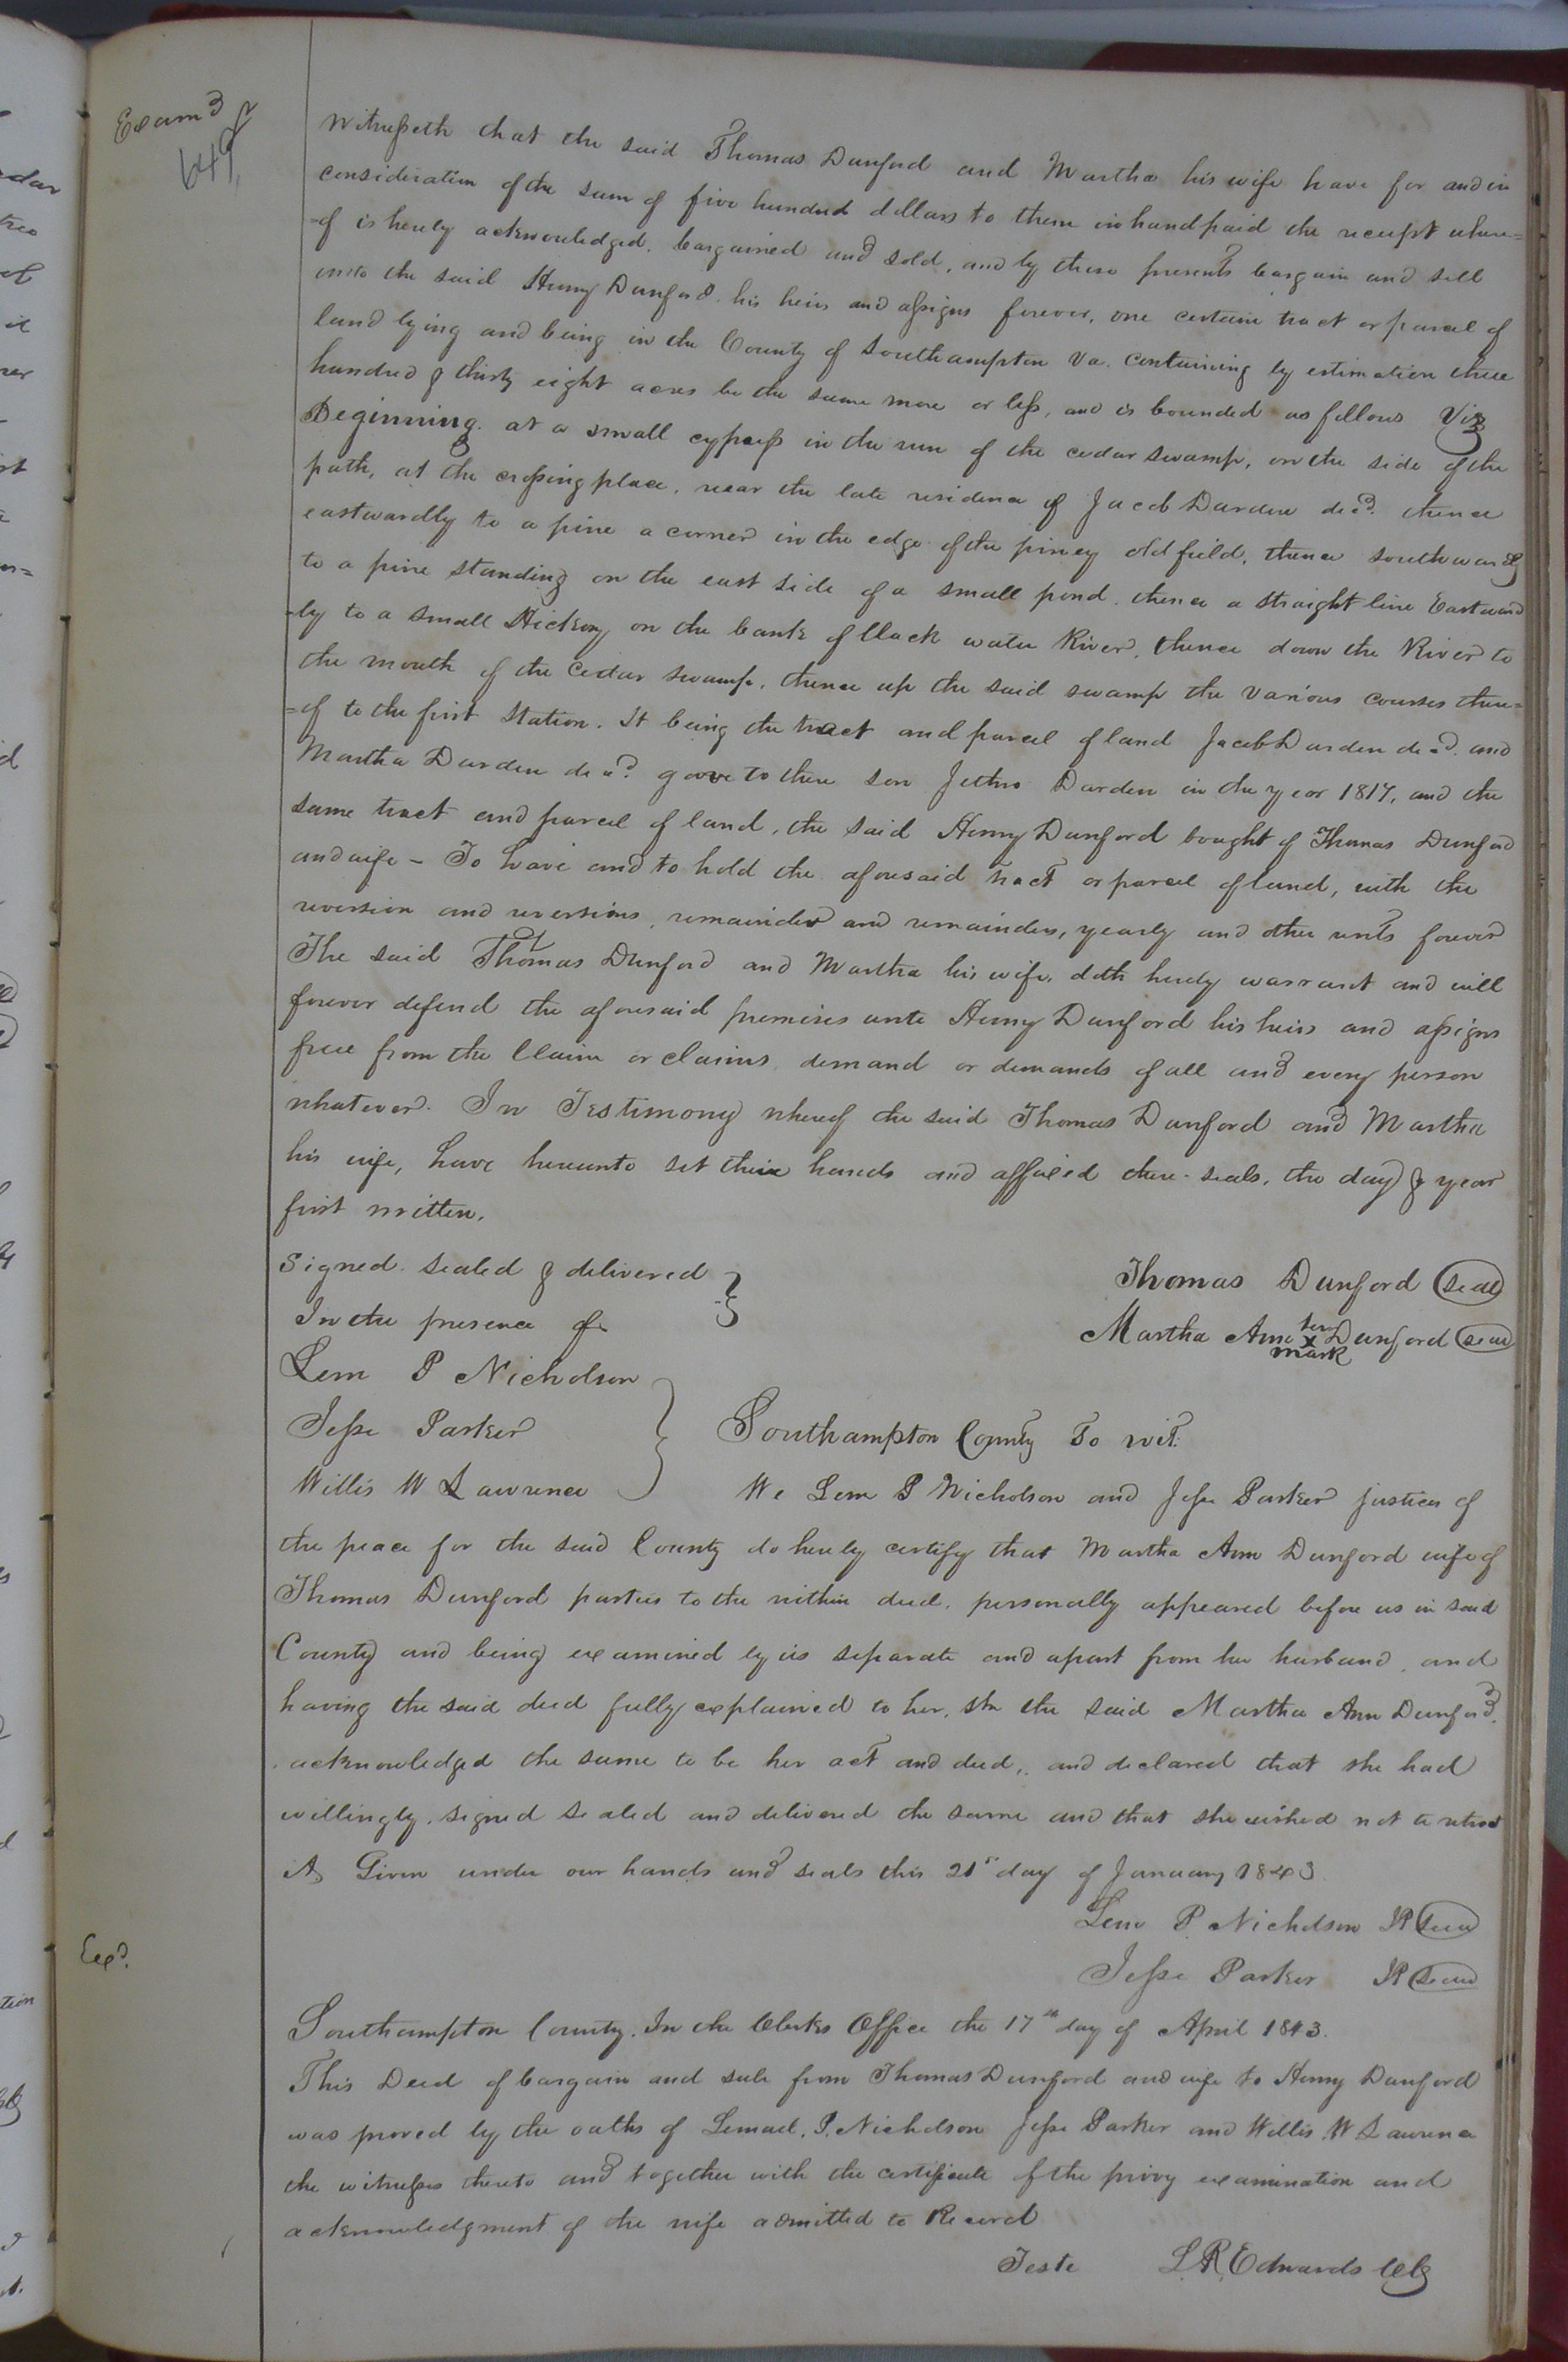 Examd
649
Witnesseth that the said Thomas Dunford and Martha his wife have for and in
consideration of the sum of five hundred dollars to them in hand paid the receipt where=
=of is hereby acknowledged, bargained and sold, and by these presents bargain and sell
unto the said Henry Dunford his heirs and assigns forever, one certain tract or parcel of
land lying and being in the County of Southampton Va. containing by estimation three
hundred & thirty eight acres be the same more or less, and is bounded as follows Viz
Beginning at a small cypress in the run of the cedar swamp, on the side of the
path, at the crossing place, near the late residence of Jacob Darden decd. thence
eastwardly to a pine a corner in the edge of the piney old field, thence southwardly
to a pine standing on the east side of a small pond, thence a straight line Eastward
-ly to a small Hickory on the bank of Black water River, thence down the River to
the mouth of the Cedar swamp, thence up the said swamp the various courses there=
=of to the first Station. It being the tract and parcel of land Jacob Darden decd. and
Martha Darden decd. gave to there son Jethro Darden in the year 1817, and the
same tract and parcel of land, the said Henry Dunford bought of Thomas Dunford
and wife – To have and to hold the aforesaid tract or parcel of land, with the
reversion and reversions, remainder and remainders, yearly and other rents forever
The said Thomas Dunford and Martha his wife, doth hereby warrant and will
forever defend the aforesaid premises unto Henry Dunford his heirs and assigns
free from the Claim or claims, demand or demands of all and every person
whatever. In Testimony whereof the said Thomas Dunford and Martha
his wife, have hereunto set their hands and affixed there seals, the day & year
first written.
Signed Sealed & delivered
In the presence of
Thomas Dunford Seal
Martha Ann her x mark Dunford Seal
Lem P Nicholson
Jesse Parker
Willis W Lawrence
Southampton County To wit.
We Lem P Nicholson and Jesse Parker justices of
the peace for the said County do hereby certify that Martha Ann Dunford wife of
Thomas Dunford parties to the within deed, personally appeared before us in said
County and being examined by us separate and apart from her husband, and
having the said deed fully explained to her, she the said Martha Ann Dunford
acknowledged the same to be her act and deed, and declared that she had
willingly signed Sealed and delivered the same and that she wished not to retract
it. Given under our hands and seals this 21st day of January 1843
Lem P. Nicholson JP Seal
Jesse Parker JP Seal
Exd.
Southampton County. In the Clerks Office the 17th day of April 1843.
This Deed of bargain and sale from Thomas Dunford and wife to Henry Dunford
was proved by the oaths of Lemuel P. Nicholson Jesse Parker and Willis W Lawrence
the witnesses thereto and together with the certificate of the privy examination and
acknowledgment of the wife admitted to Record
Teste L.R. Edwards Clk